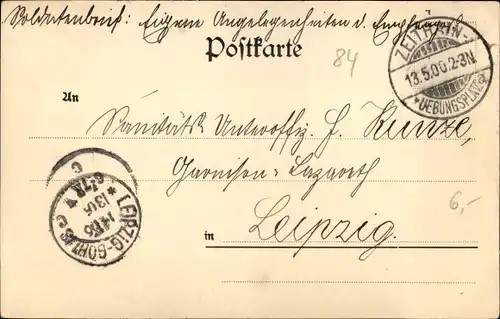 Soldatenbrief: Eigene Angelegenheiten d. Empfängers
Postkarte
84
ZEITHAIN-
13.5.00.2-3N.
* UEBUNGSPLATZ
An
Sanitäts Unteroffiz. F. Kunze,
Garnison-Lazareth
in Leipzig.
LEIPZIG-GOHLIS
6,-